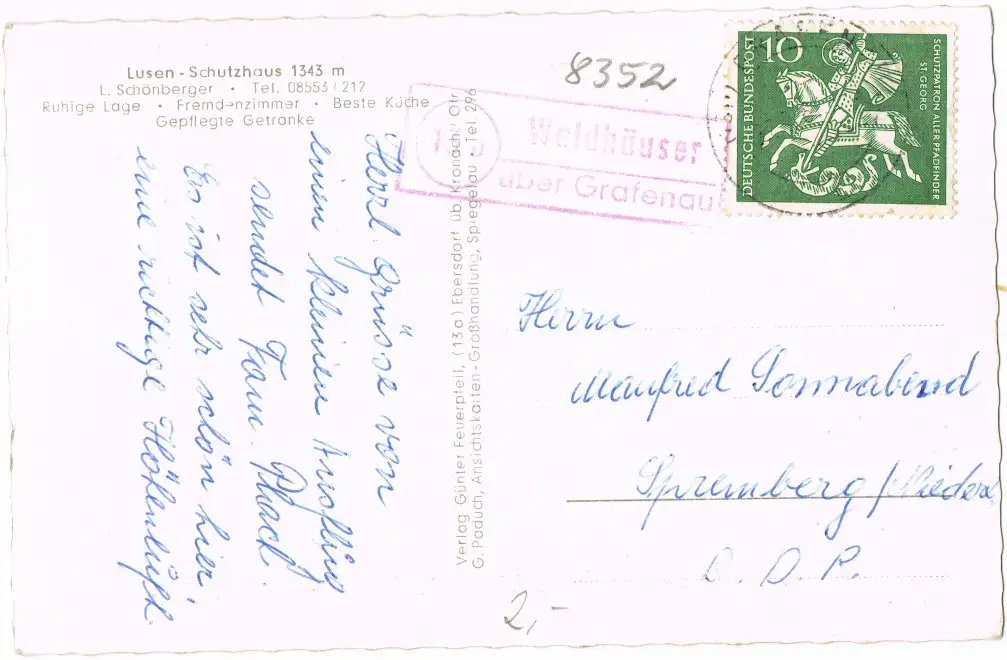 Lusen - Schutzhaus 1343 m
L. Schönberger • Tel. 08553/212
Ruhige Lage • Fremdenzimmer • Beste Küche
Gepflegte Getränke
Herzl. Grüsse von
einen kleinen Ausflug
sendet Fam.
Es ist sehr schön hier,
eine richtige Höhenluft.
Verlag Günter Feuerpfeil, (13a) Ebersdorf üb. Kronach/Ofr.
G. Paduch, Ansichtskarten-Großhandlung, Spiegelau - Tel. 296
8352
Waldhäuser
über Grafenau
10
DEUTSCHE BUNDESPOST
SCHUTZPATRON ALLER PFADFINDER
ST. GEORG
Herrn
Manfred Sonnabend
Spremberg
D. D. R.
2,-